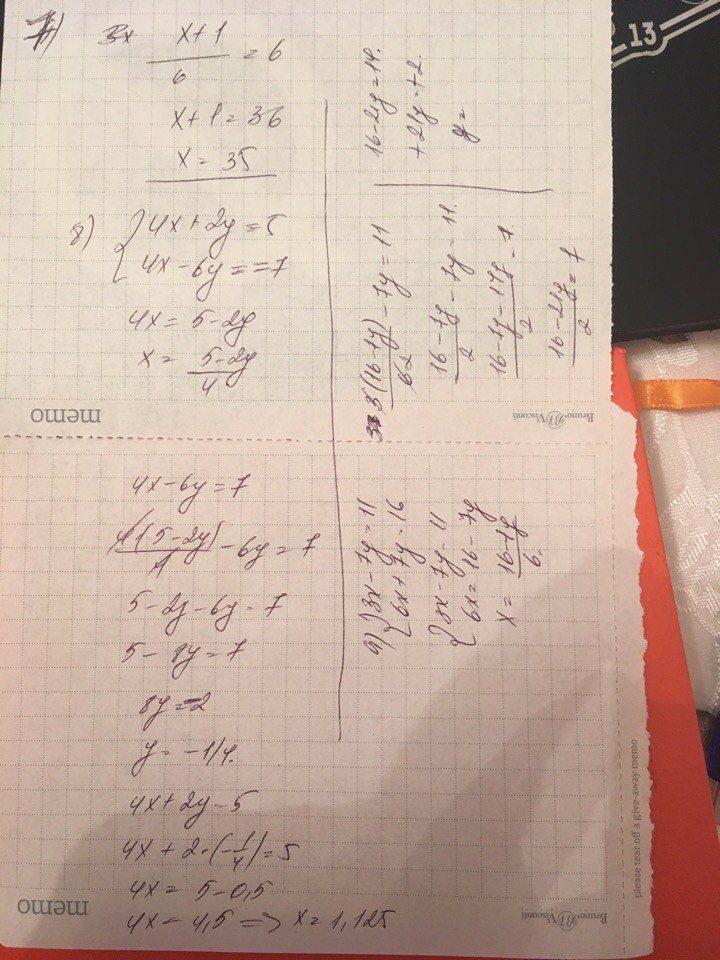 7) 3x (x+1)/6 = 6
x+1 = 36
x = 35
8) { 4x+2y = 5
4x-6y = =7
4x = 5-2y
x = (5-2y)/4
memo
Bruno BV Visconti
4x-6y = 7
4(5-2y)/4 - 6y = 7
5-2y-6y = 7
5-8y = 7
8y = -2
y = -1/4.
4x+2y = 5
4x + 2·(-1/4) = 5
4x = 5-0,5
4x = 4,5 => x = 1,125
memo
Bruno BV Visconti
9) { 3x-7y = 11
6x+7y = 16
{ 3x-7y = 11
6x = 16-7y
x = (16-7y)/6.
3(16-7y)/6 2 - 7y = 11
(16-7y)/2 - 7y = 11.
(16-7y-14y)/2 = 7
(16-21y)/2 = 7
16-21y = 14.
+21y = +2.
y =
please tear off a give-away memo
13